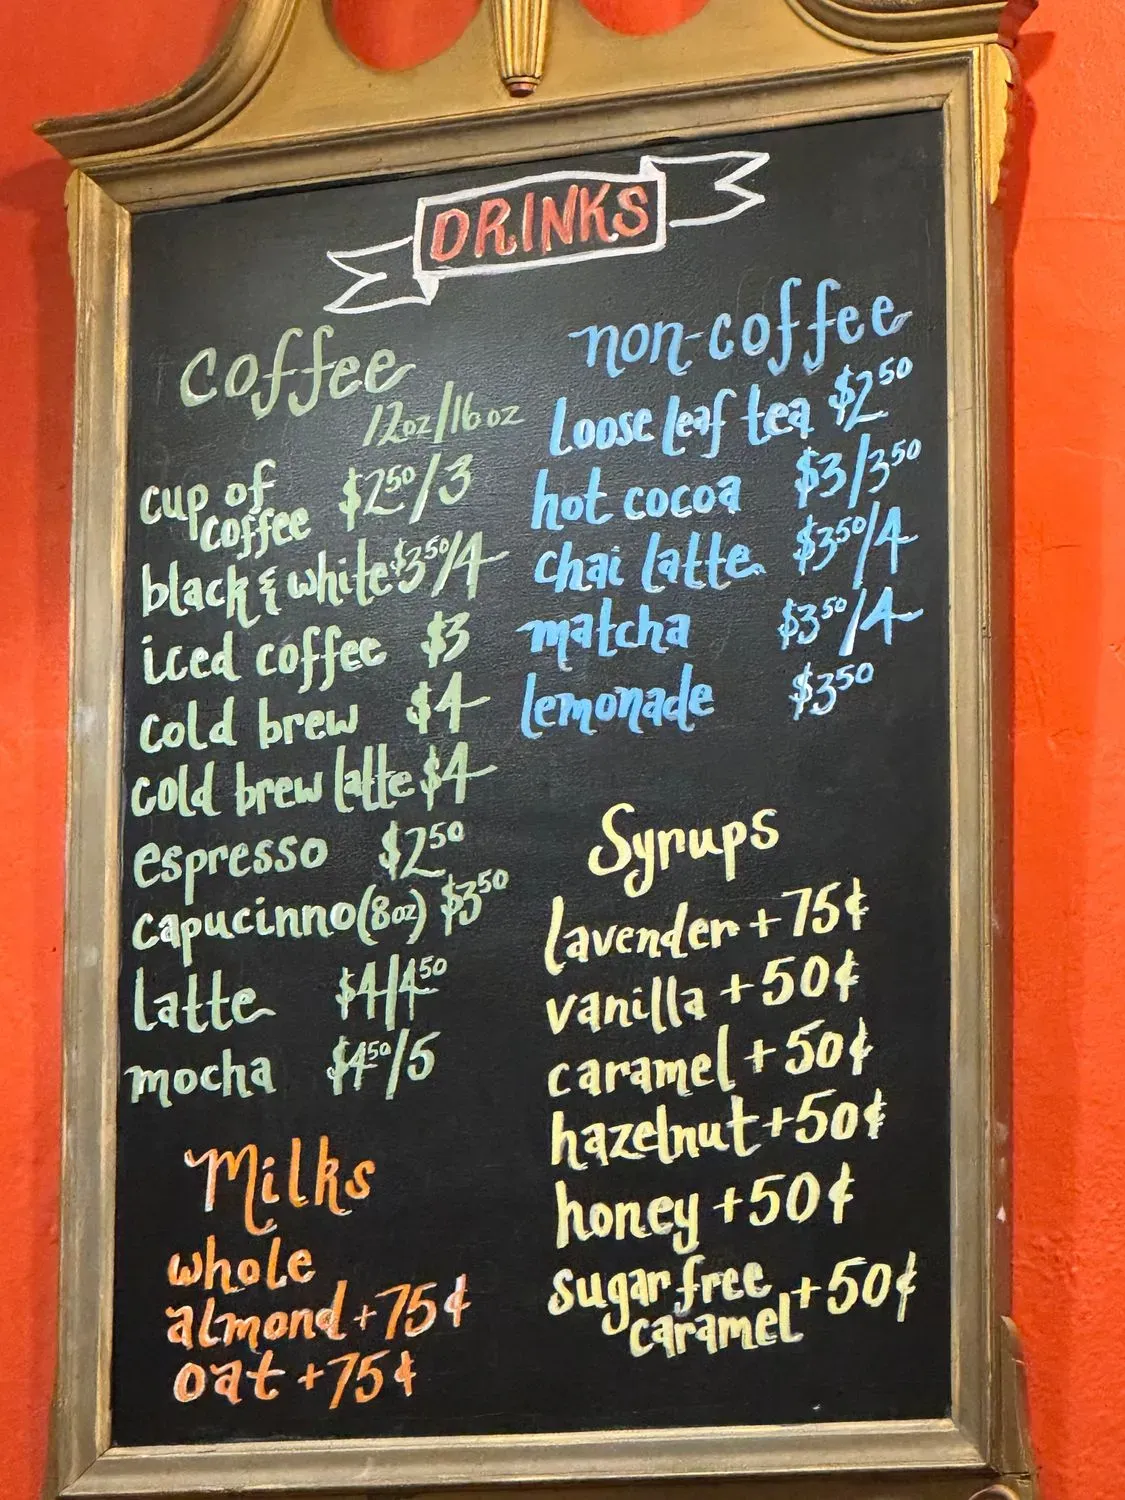 DRINKS
coffee
12oz/16oz
cup of
coffee $2.50/3
black & white $3.50/4
iced coffee $3
cold brew $4
cold brew latte $4
espresso $2.50
capucinno (8oz) $3.50
latte $4/4.50
mocha $4.50/5
Milks
whole
almond + 75¢
oat + 75¢
non-coffee
loose leaf tea $2.50
hot cocoa $3/3.50
chai latte $3.50/4
matcha $3.50/4
lemonade $3.50
Syrups
lavender + 75¢
vanilla + 50¢
caramel + 50¢
hazelnut + 50¢
honey + 50¢
sugar free
caramel + 50¢